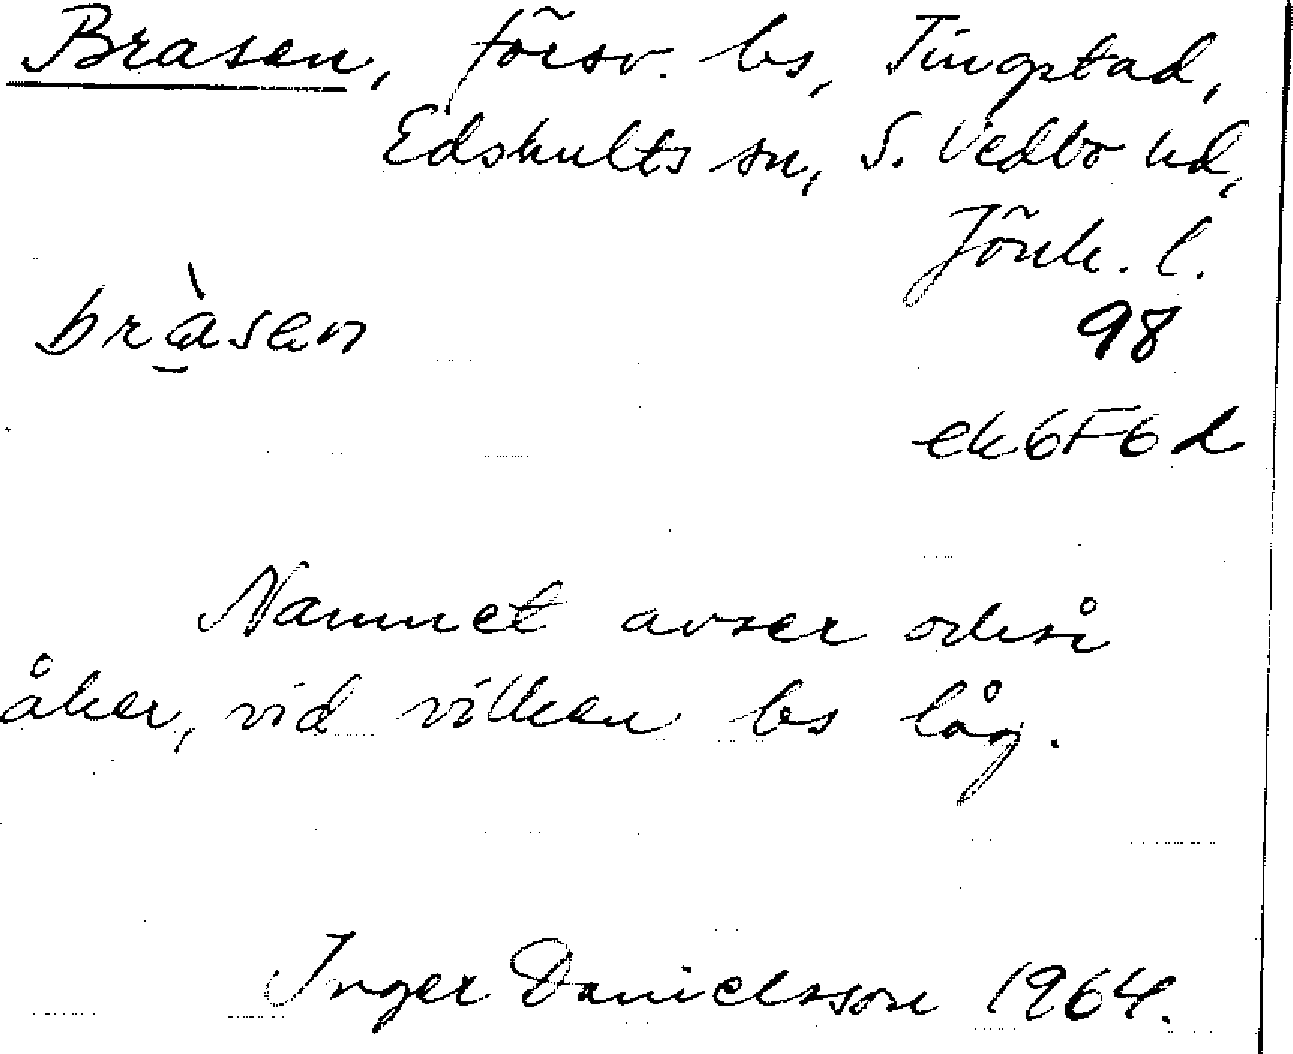 Brasen, försv. bs, Tingstad,
Edshults sn, S. Vedbo hd,
Jönk. l.
brà̱san
98
ek6F6d
Namnet avser också
åker, vid vilken bs låg.
Inger Danielsson 1964.